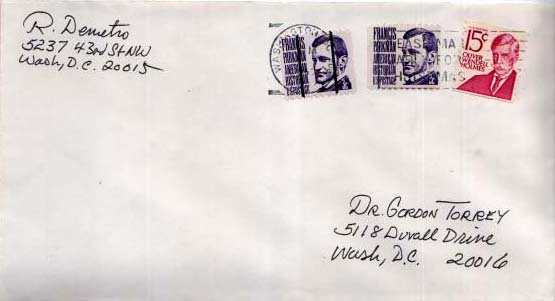 R. Demetro
5237 43rd St NW
Wash, D.C. 20015
WASHINGTON
FRANCIS
PARKMAN
AMERICAN
HISTORIAN
FRANCIS
PARKMAN
AMERICAN
15¢
OLIVER
WENDELL
HOLMES
DR. GORDON TORREY
5118 Duvall Drive
Wash, D.C. 20016